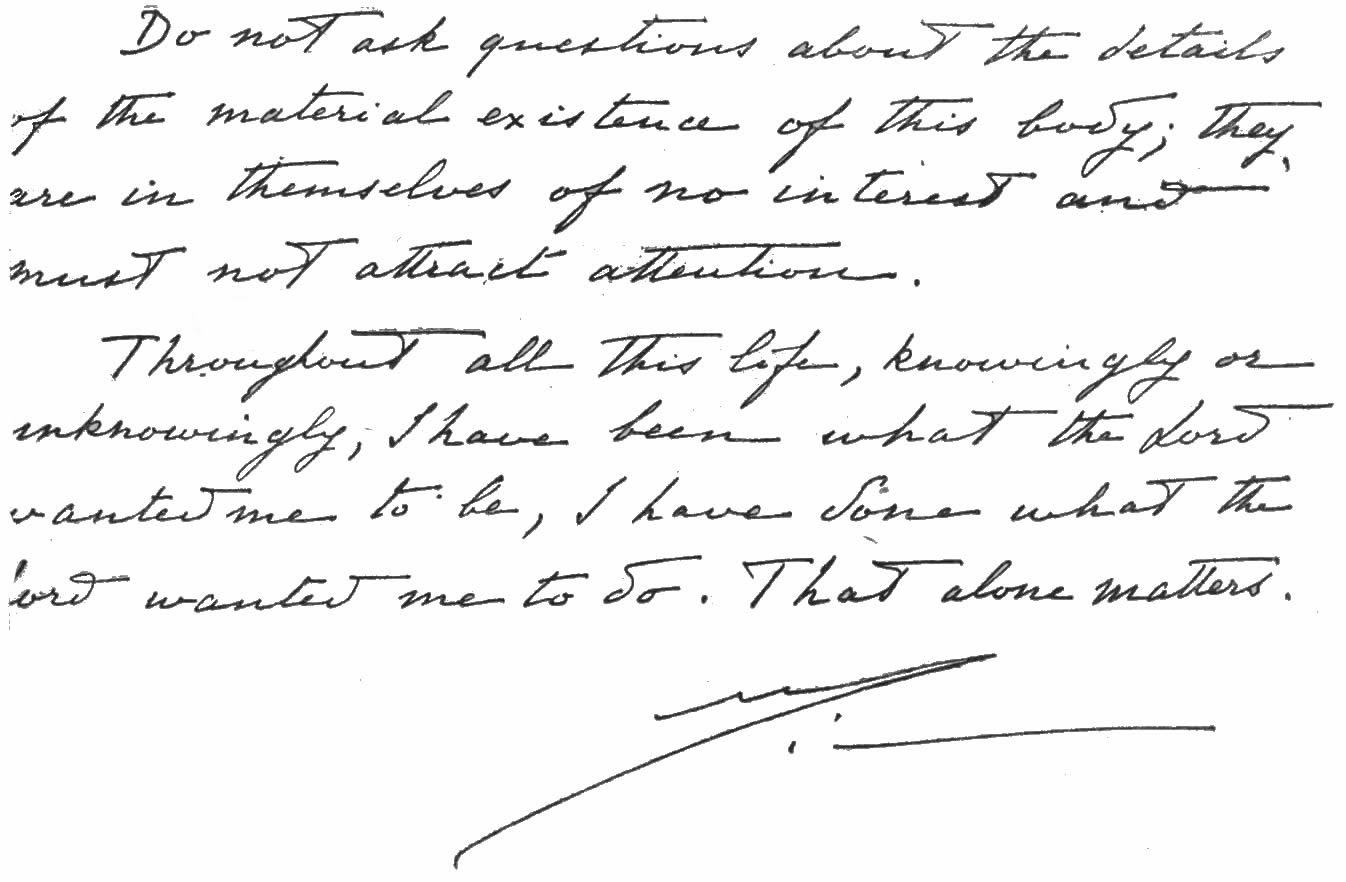 Do not ask questions about the details
of the material existence of this body; they
are in themselves of no interest and
must not attract attention.
Throughout all this life, knowingly or
unknowingly, I have been what the Lord
wanted me to be, I have done what the
Lord wanted me to do. That alone matters.